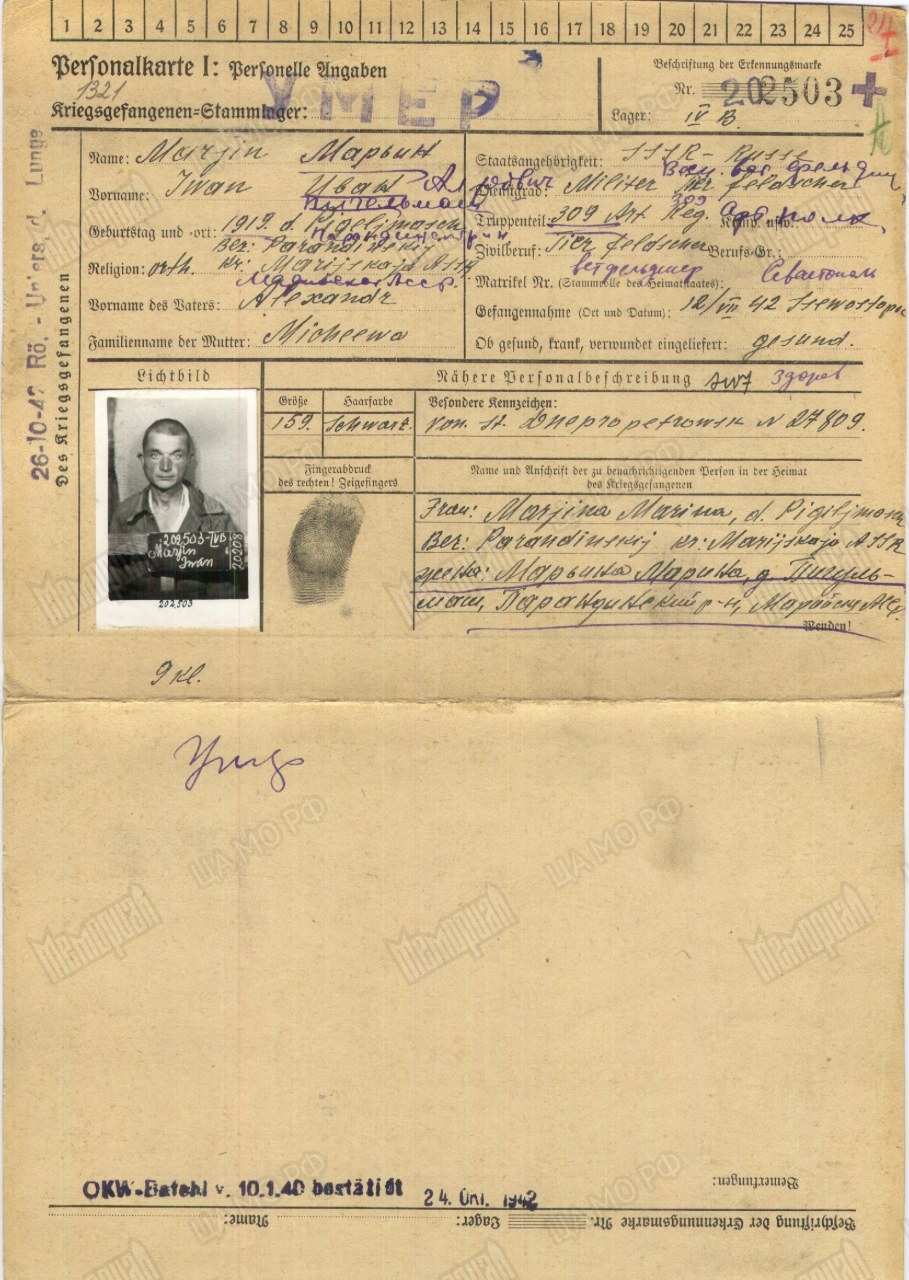 1 2 3 4 5 6 7 8 9 10 11 12 13 14 15 16 17 18 19 20 21 22 23 24 25
Personalkarte I: Personelle Angaben
1321
Kriegsgefangenen=Stammlager:
УМЕР
Beschriftung der Erkennungsmarke
Nr. 202503
Lager: IV B.
26-10-42 Rö.-Unters. d. Lunge
Des Kriegsgefangenen
Name: Marjin Марьин
Vorname: Iwan Иван
Geburtstag und =ort: 1919. d. Pigeljmasch
Ber: Parandinskij
Religion: orth. kr: Marijskoja ASSR
Vorname des Vaters: Alexandr
Familienname der Mutter: Micheewa
Staatsangehörigkeit: SSSR - Russe
Dienstgrad: Militer feldscher
Truppenteil: 309 Art Reg. Komp. usw.:
Zivilberuf: Tier feldscher Berufs=Gr.:
ветфельдшер Севастополь
Matrikel Nr. (Stammrolle des Heimatstaates):
Gefangennahme (Ort und Datum): 12/VII 42 Ssewastopol
Ob gesund, krank, verwundet eingeliefert: gesund.
Lichtbild
Nähere Personalbeschreibung здоров
Größe Haarfarbe Besondere Kennzeichen:
159. Schwarz. Von. St. Dnepropetrowsk N 27809.
Fingerabdruck
des rechten! Zeigefingers
Name und Anschrift der zu benachrichtigenden Person in der Heimat
des Kriegsgefangenen
Frau: Marjina Marina, d. Pigiljmosch
Ber: Parandinskij kr: Marijskoja ASSR
жена: Марьина Марина, д. Пигуль-
маш, Парандинский р-н, Марийск. АССР.
Wenden!
202,503-IVB
Marjin
Iwan
20208
202,503
9 kl.
OKW-Befehl v. 10.1.40 bestätigt 24. Okt. 1942
Bemerkungen:
Beschriftung der Erkennungsmarke Nr. Lager: Name:
ЦАМО РФ
Мемориал